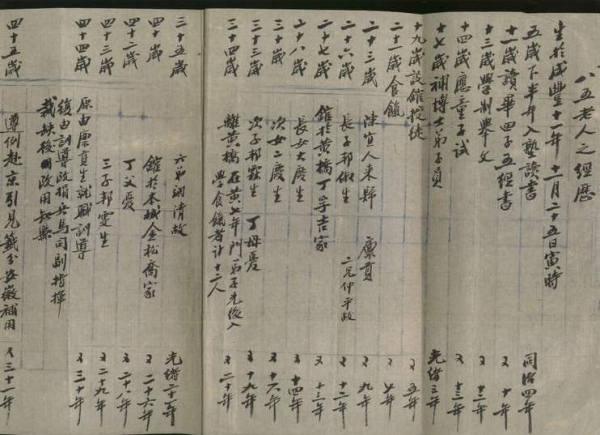 八五老人之經歷
生於咸豐十一年十一月二十五日寅時
五歲下半年入塾讀書 同治四年
十一歲讀畢四子五經書 〻十年
十三歲學制舉文 〻十二年
十四歲應童子試 〻十三年
十七歲補博士弟子員 光緒三年
十九歲設館授徒 〻五年
二十一歲食餼 〻七年
二十三歲 陳宜人來歸 廩貢 〻九年
二十六歲 長子邦俶生 二兄仲平故 〻十二年
二十七歲 館於黃橋丁孚吉家 〻十三年
二十八歲 長女大慶生 〻十四年
三十歲 次女二慶生 〻十六年
三十三歲 次子邦獻生 丁母憂 〻十九年
三十四歲 離黃橋 在黃七年門弟子先後入學食餼者計十二人 〻二十年
三十五歲 六弟洞清故 光緒二十一年
四十歲 館於本城金松喬家 〻二十六年
四十二歲 丁父憂 〻二十八年
四十三歲 三子邦雯生 〻二十九年
四十四歲 原由廩貢生就職訓導
後由訓導改捐兵馬司副指揮
裁缺後改用知縣
四十五歲 遵例赴京引見籤分安徽補用 〻三十一年